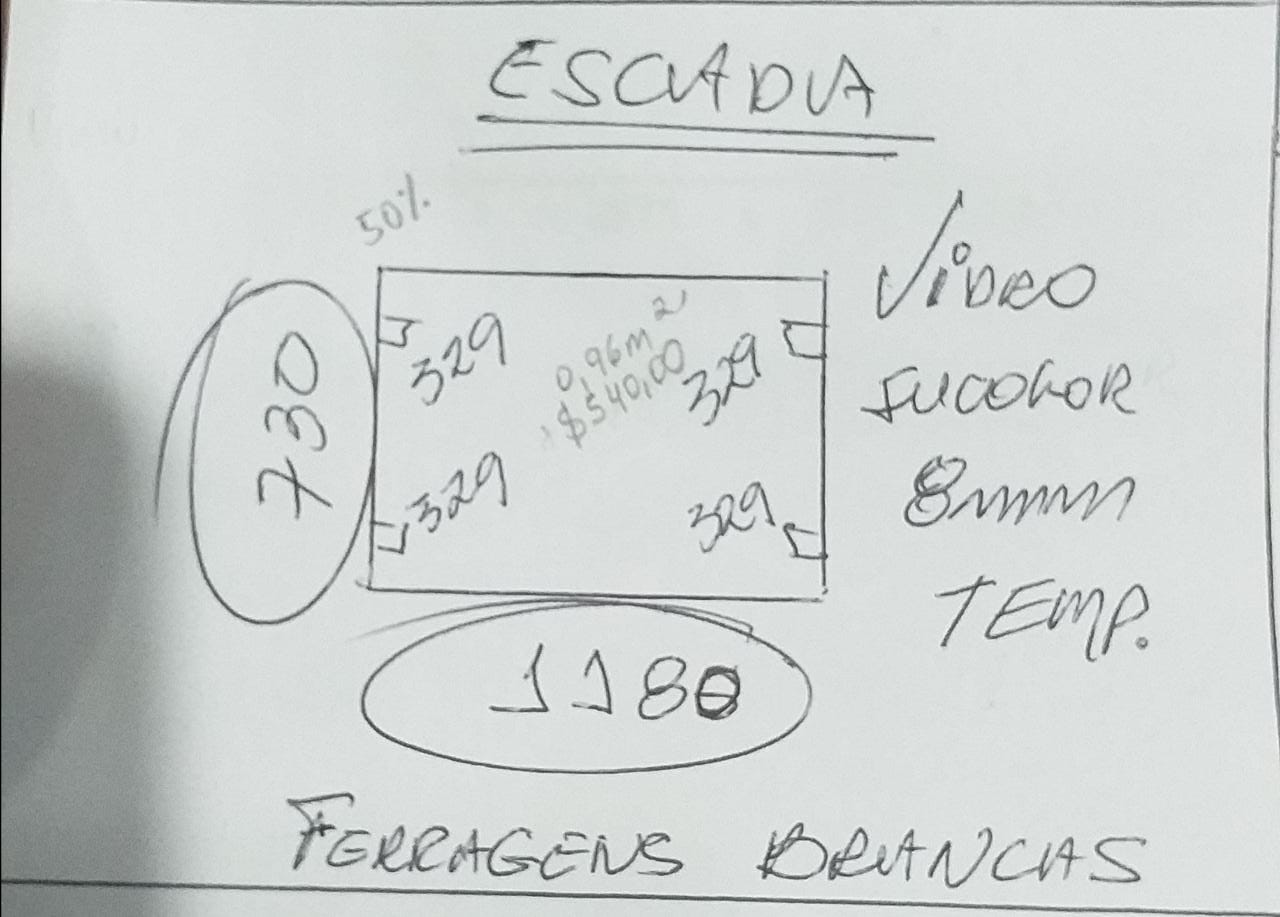 ESCADA
50%
730
329
0,96m²
$540,00
329
329
329
1180
VIDRO
INCOLOR
8mmm
TEMP.
FERRAGENS BRANCAS